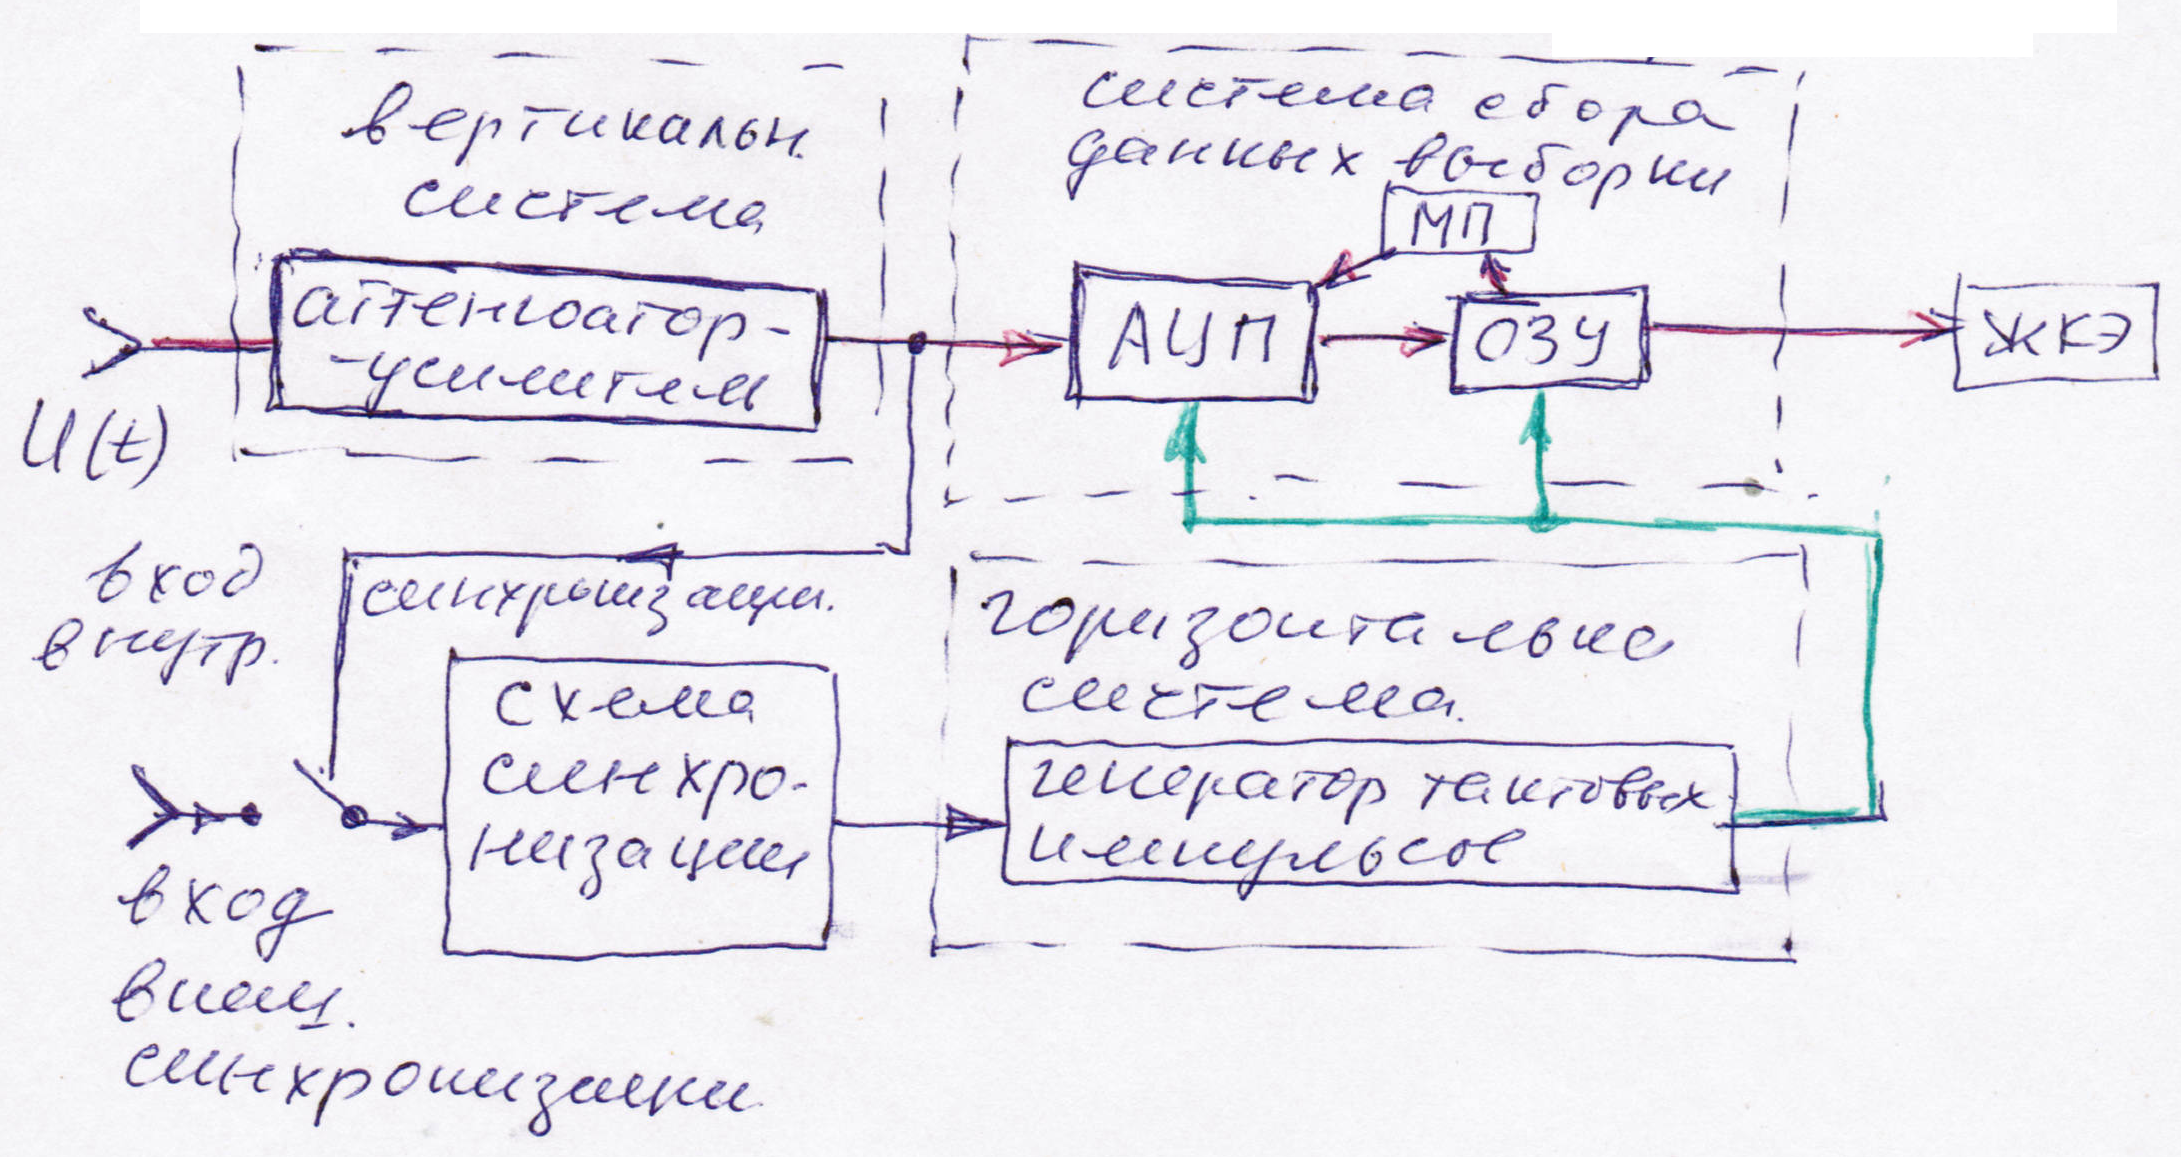 вертикальн.
система
система сбора
данных выборки
МП
аттенюатор-
-усилитель
АЦП
ОЗУ
ЖКЭ
U(t)
вход
внутр.
синхронизации.
горизонтальна
система.
схема
синхро-
низации
генератор тактовых
импульсов
вход
внеш.
синхронизации